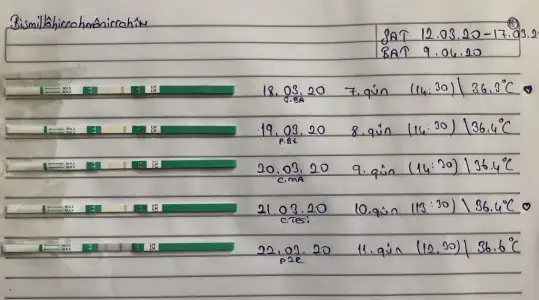 Bismillâhirrahmânirrahîm
SAT 12.03.20-17.03.2
BAT 9.04.20
18.03.20 7.gün (14:30) \ 36.3°C
Ç.BA
19.03.20 8.gün (14:30) \ 36.4°C
PBE
20.03.20 9.gün (14:30) \ 36.4°C
C.MA
21.03.20 10.gün (13:30) \ 36.4°C
C.TESi
22.03.20 11.gün (12.30) \ 36.6°C
PZR